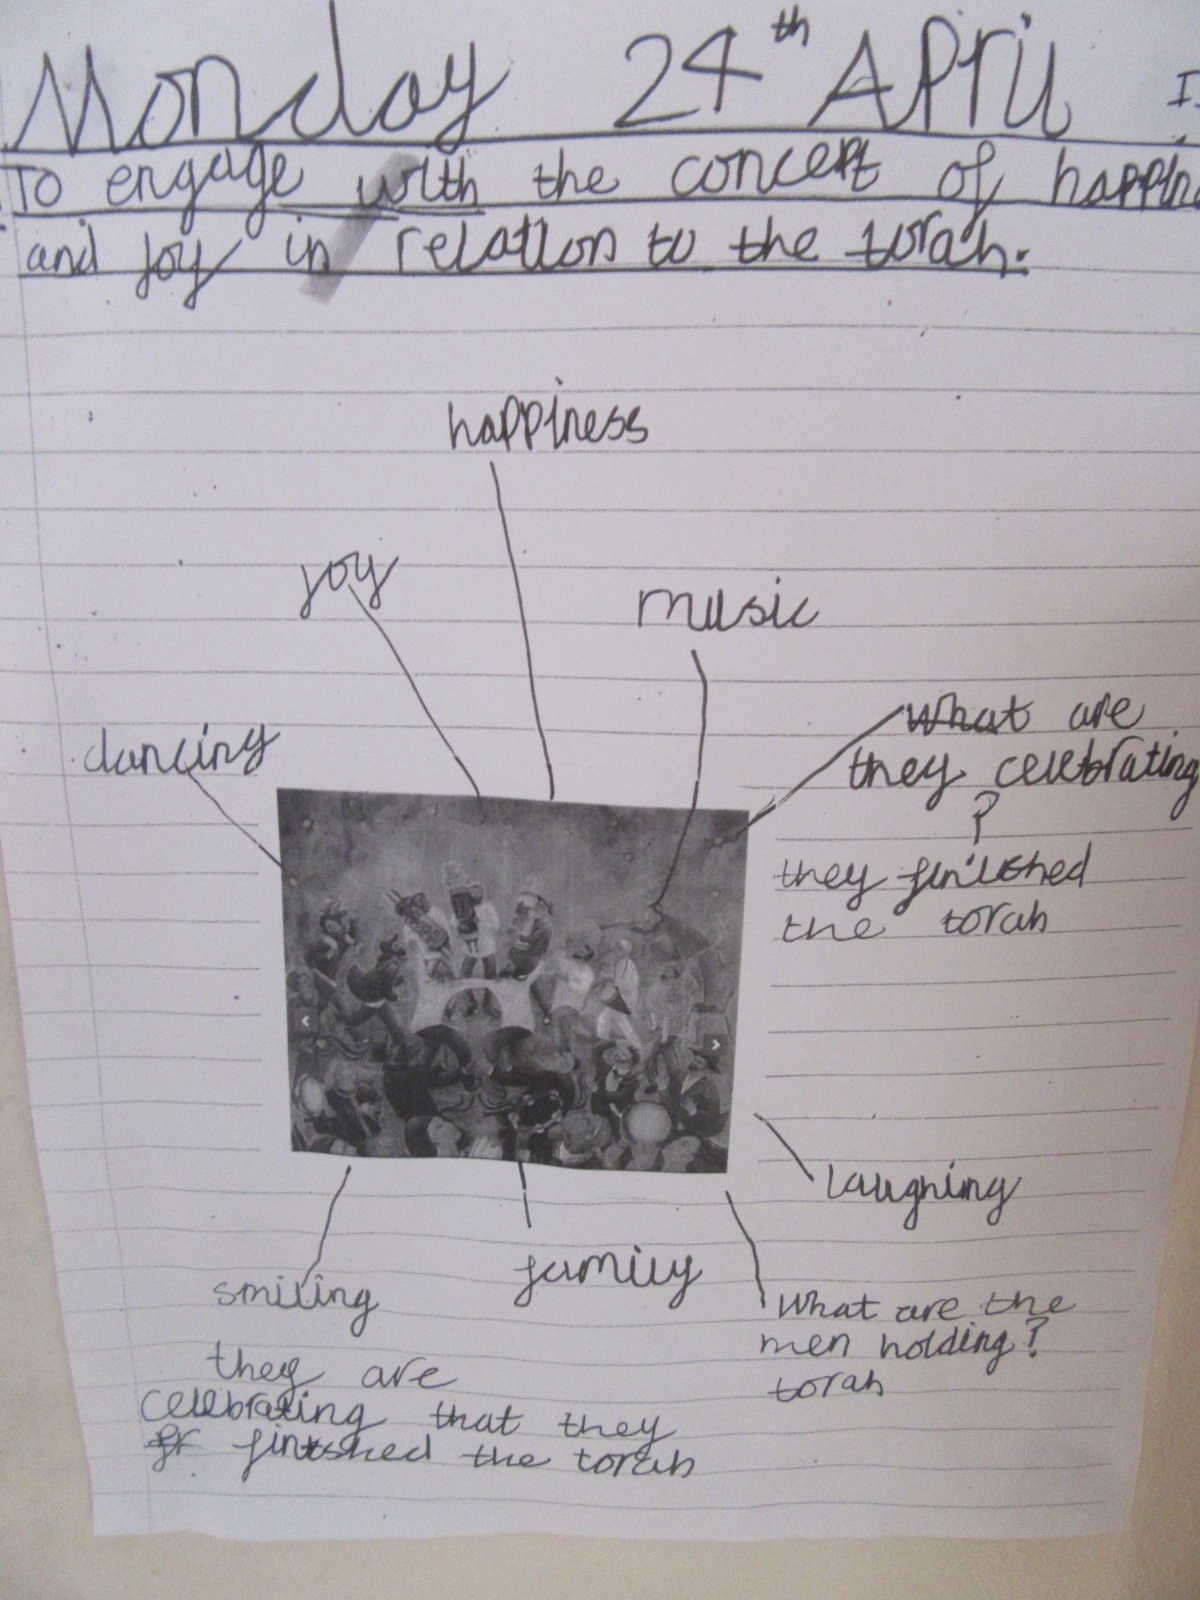 Monday 24th April
To engage with the concept of
and joy in relation to the torah.
happiness
joy
music
dancing
What are
they celebrating
?
they finished
the torah
laughing
family
smiling
What are the
men holding?
torah
they are
celebrating that they
finished the torah